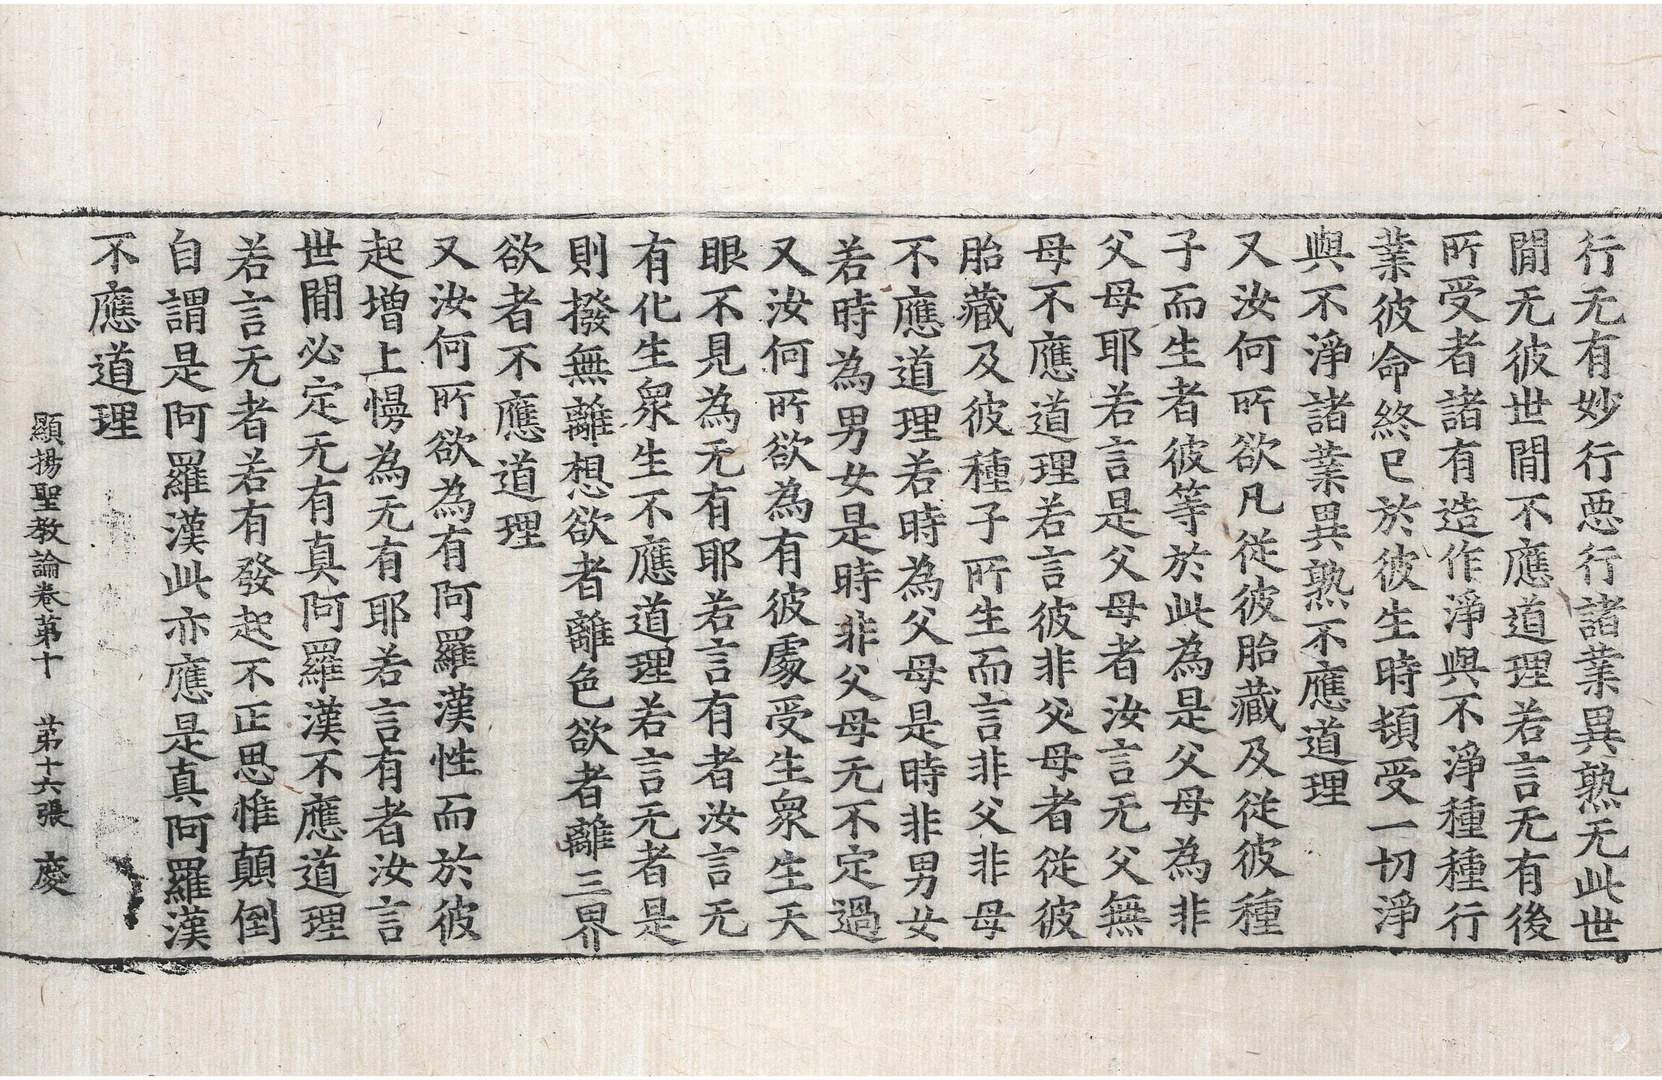 行无有妙行惡行諸業異熟无此世
閒无彼世閒不應道理若言无有後
所受者諸有造作淨與不淨種種行
業彼命終已於彼生時頓受一切淨
與不淨諸業異熟不應道理
又汝何所欲凡從彼胎藏及從彼種
子而生者彼等於此為是父母為非
父母耶若言是父母者汝言无父無
母不應道理若言彼非父母者從彼
胎藏及彼種子所生而言非父非母
不應道理若時為父母是時非男女
若時為男女是時非父母无不定過
又汝何所欲為有彼處受生衆生天
眼不見為无有耶若言有者汝言无
有化生衆生不應道理若言无者是
則撥無離想欲者離色欲者離三界
欲者不應道理
又汝何所欲為有阿羅漢性而於彼
起增上慢為无有耶若言有者汝言
世閒必定无有真阿羅漢不應道理
若言无者若有發起不正思惟顛倒
自謂是阿羅漢此亦應是真阿羅漢
不應道理
顯揚聖教論卷第十　第十六張　慶